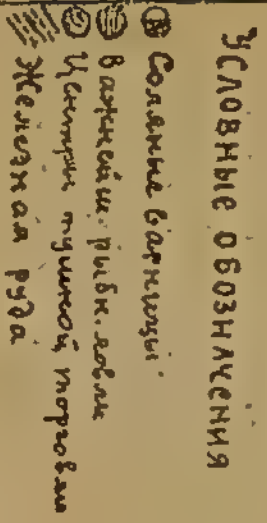 УСЛОВНЫЕ ОБОЗНАЧЕНИЯ
Соляные варницы
Важнейш. рыбн. ловли
Центры пушной торговли
Железная руда